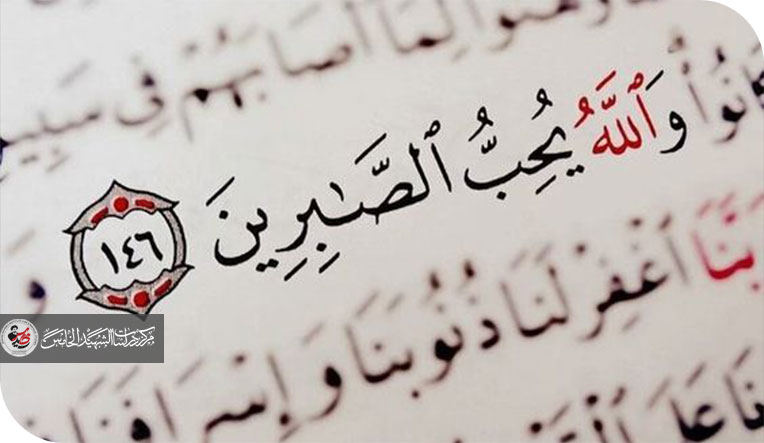 وَهَنُوا۟ لِمَآ أَصَابَهُمْ فِى سَبِيلِ
وَٱللَّهُ يُحِبُّ ٱلصَّـٰبِرِينَ ١٤٦ وَ
بَّنَا ٱغْفِرْ لَنَا ذُنُوبَنَا وَإِسْرَافَنَا
مركز دراسات الشهيد الخامس